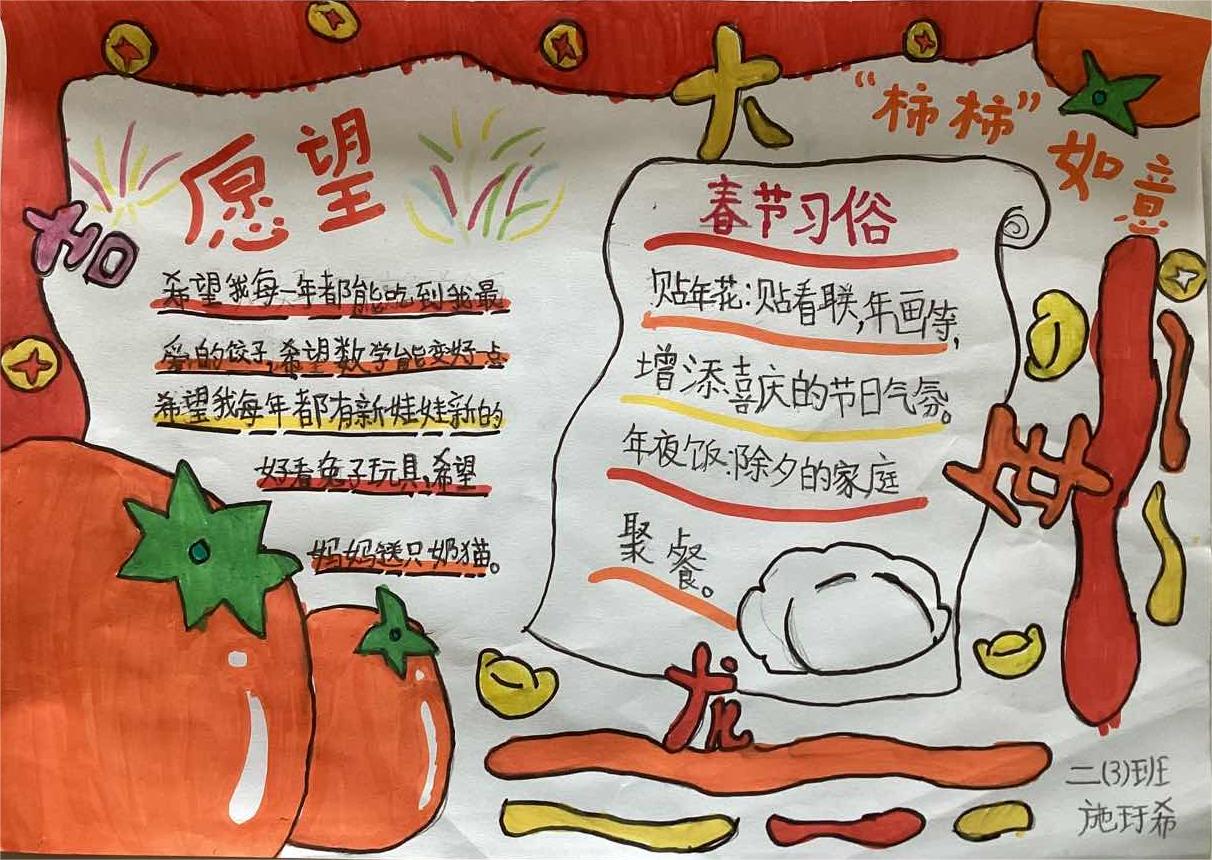 大
吉
龙
年
“柿柿”
如意
愿望
希望我每一年都能吃到我最
爱的饺子,希望数学能变好一点
希望我每年都有新娃娃新的
好看兔子玩具,希望
妈妈送只奶猫。
春节习俗
贴年花:贴春联,年画等,
增添喜庆的节日气氛。
年夜饭:除夕的家庭
聚餐。
二(3)班
施玗希